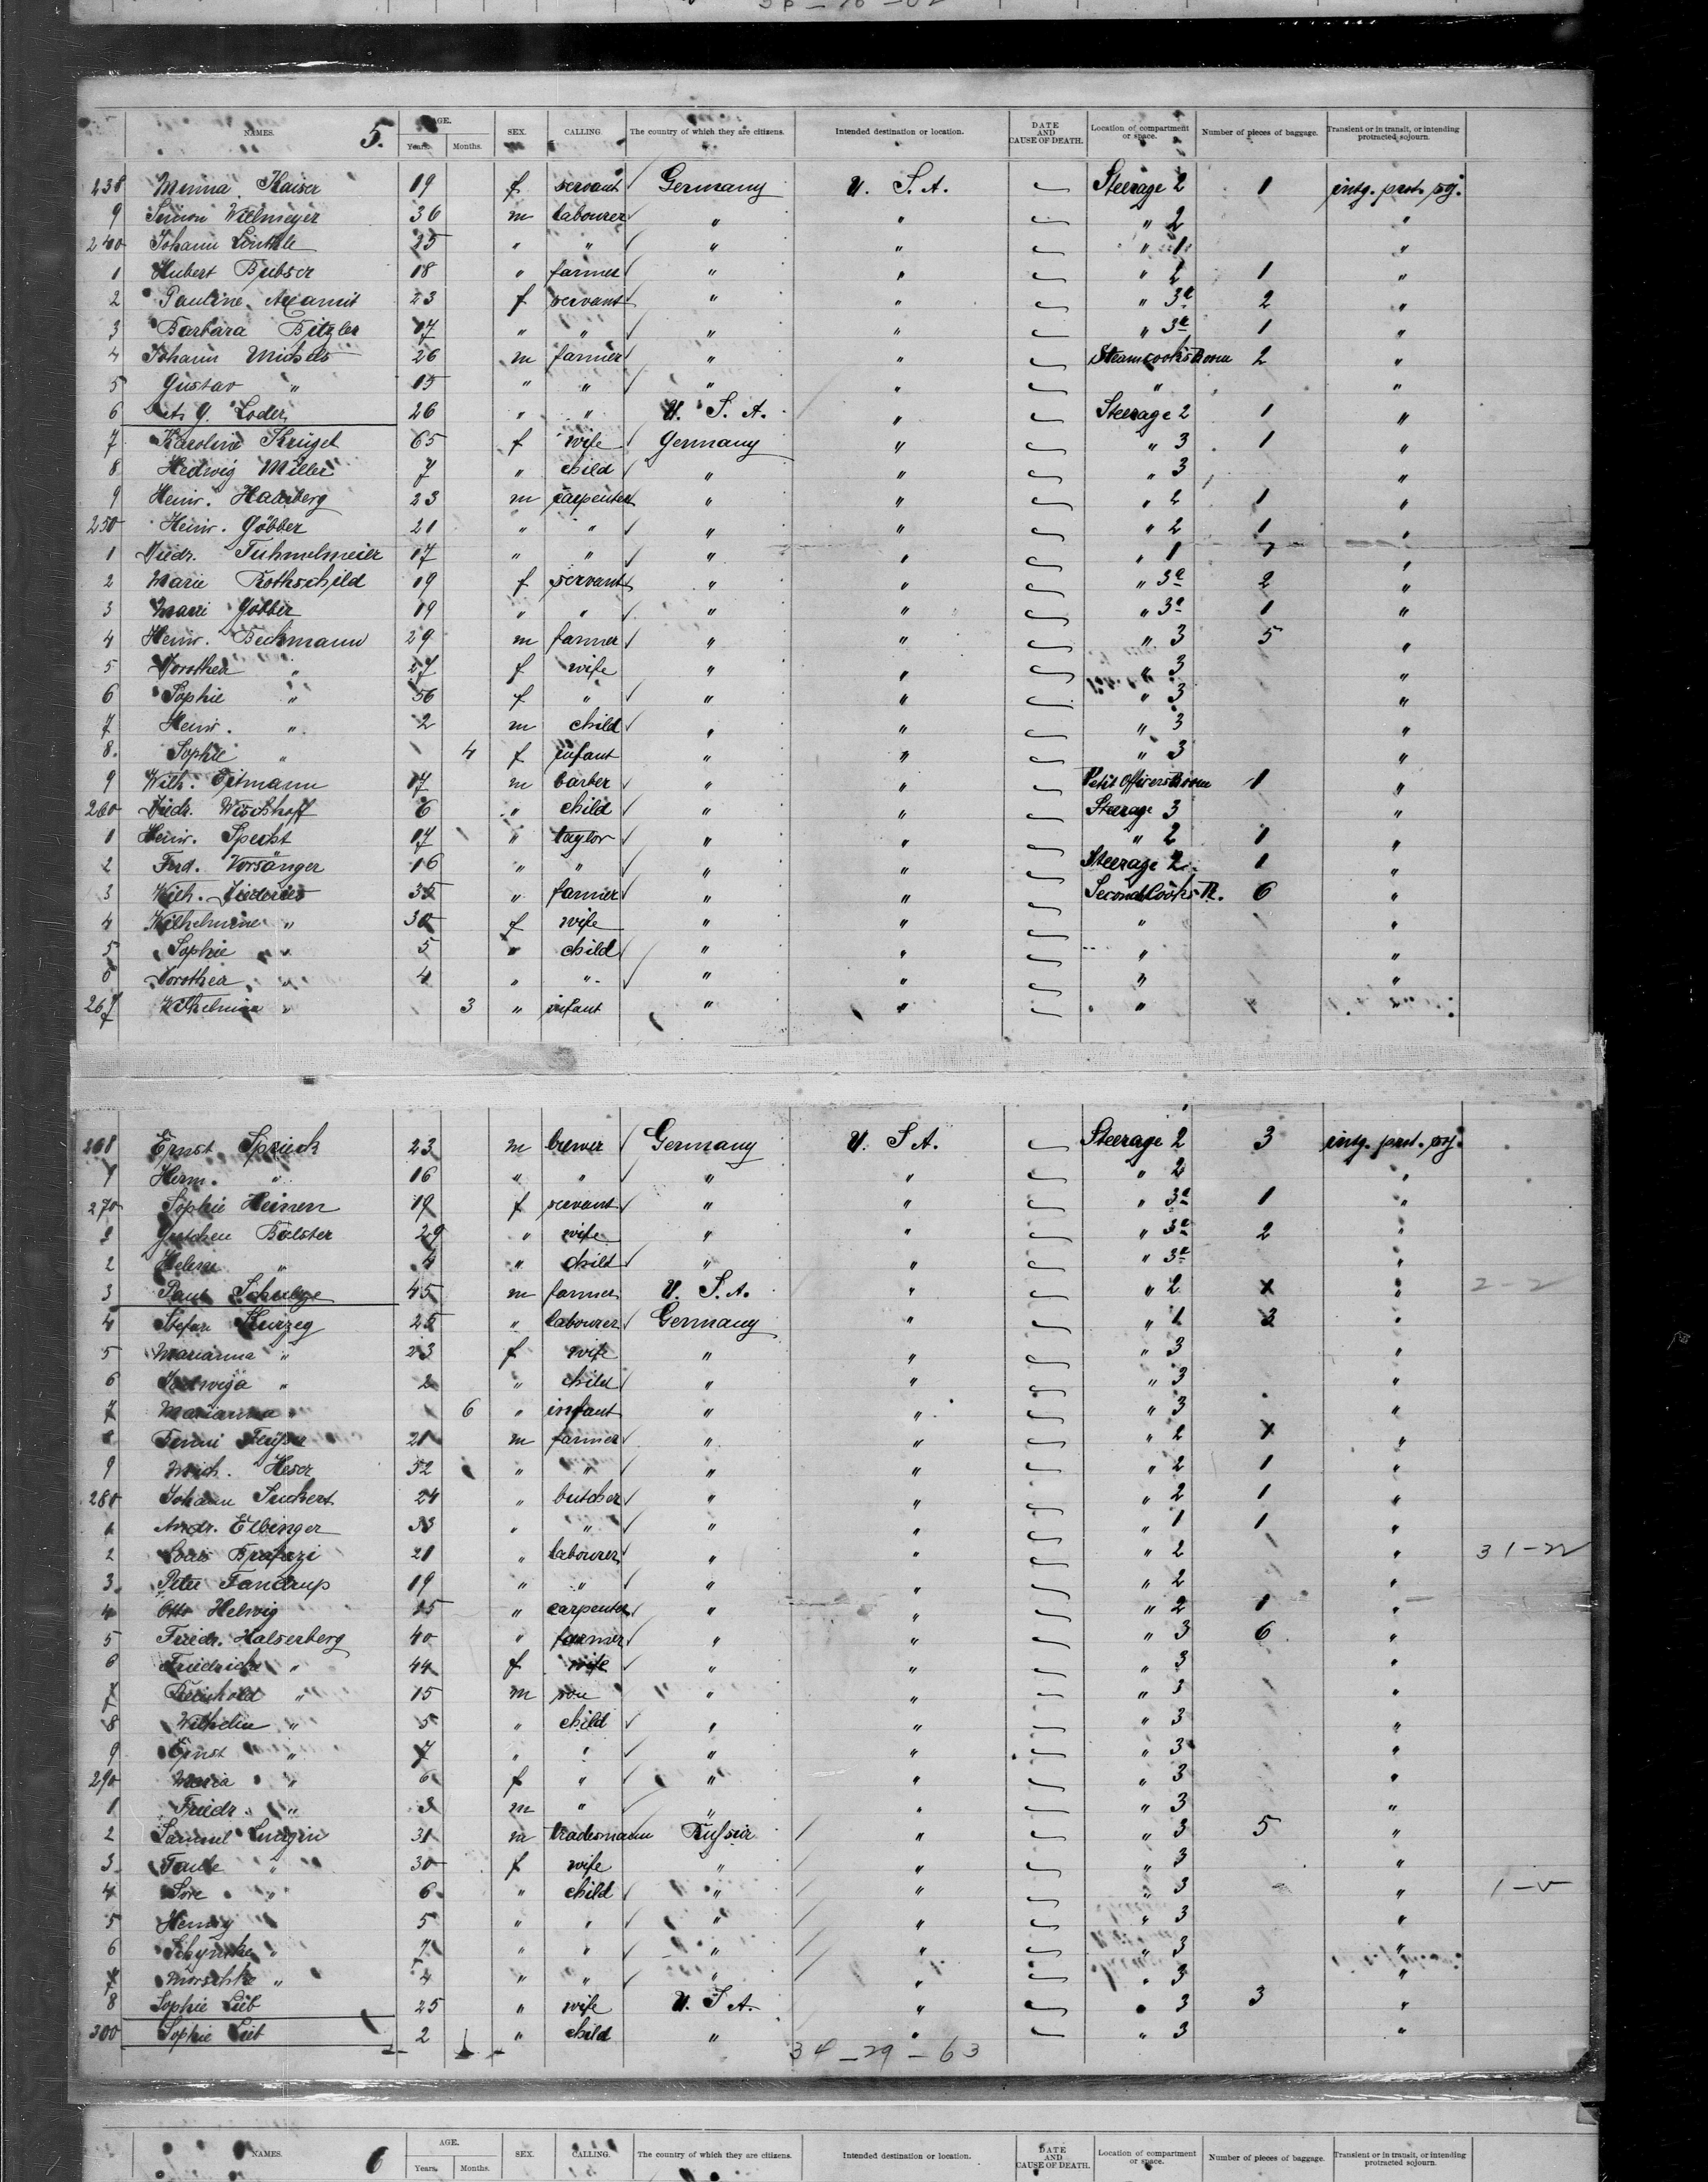 5.
NAMES. AGE. SEX. CALLING. The country of which they are citizens. Intended destination or location. DATE AND CAUSE OF DEATH. Location of compartment or space. Number of pieces of baggage. Transient or in transit, or intending protracted sojourn.
Years. Months.
238 Minna Kaiser 19 f servant Germany U. S. A. Steerage 2 1 intg. prot. soj.
9 Simon Willmeyer 36 m labourer " " " 2 "
240 Johann 25 " " " " " 1 "
1 Hubert Bubser 18 " farmer " " " 1 "
2 Pauline 23 f servant " " " 3a 2 "
3 Barbara Bitzler 17 " " " " " 3a 1 "
4 Johann Michels 26 m farmer " " Steamcooks Room 2 "
5 Gustav " 15 " " " " " "
6 Loder 26 " " U. S. A. " Steerage 2 1 "
7 Karoline 65 f wife Germany " " 3 1 "
8 Hedwig Müller 7 " child " " " 3 "
9 Heinr. 23 m carpenter " " " 2 1 "
250 Heinr. Göbber 21 " " " " " 2 1 "
1 Diedr. 17 " " " " " 1 1 "
2 Marie Rothschild 19 f servant " " " 3a 2 "
3 Marie Göbber 19 " " " " " 3a 1 "
4 Heinr. Beckmann 29 m farmer " " " 3 5 "
5 Dorothea " 27 f wife " " " 3 "
6 Sophie " 56 f " " " " 3 "
7 Heinr. " 2 m child " " " 3 "
8. Sophie " 4 f infant " " " 3 "
9 Wilh. 17 m barber " " Petit Officers Room 1 "
260 Diedr. Wischhoff 6 " child " " Steerage 3 "
1 Heinr. Specht 17 " taylor " " " 2 1 "
2 Ferd. Vorsänger 16 " " " " Steerage 2 1 "
3 Wilh. Diederies 35 " farmer " " Second Cooks R. 6 "
4 Wilhelmine " 30 f wife " " " "
5 Sophie " 5 " child " " " "
6 Dorothea " 4 " " " " " "
267 Wilhelmine " 3 " infant " " " "
268 Ernst Sprick 23 m brewer Germany U. S. A. Steerage 2 3 intg. prot. soj.
9 Herm. " 16 " " " " " 2 "
270 Sophie Heinen 19 f servant " " " 3a 1 "
Balster 29 " wife " " " 3a 2 "
2 Helene " 4 " child " " " 3a "
3 Paul Schulze 45 m farmer U. S. A. " " 2 " 2-2
4 Stefan 25 " labourer Germany " " 1 3 "
5 Marianna " 23 f wife " " " 3 "
6 " 2 " child " " " 3 "
7 Marianna " 6 " infant " " " 3 "
8 21 m farmer " " " 2 "
9 Mich. Heser 52 " " " " " 2 1 "
280 Johann 24 " butcher " " " 2 1 "
1 Andr. Elbinger 33 " " " " " 1 1 "
2 Louis 21 " labourer " " " 2 "
3 Peter Fandrup 19 " " " " " 2 "
4 Otto Helwig 25 " carpenter " " " 2 1 "
5 Friedr. Halserberg 40 " farmer " " " 3 6 "
6 Friedricke " 44 f wife " " " 3 "
7 Reinhold " 15 m son " " " 3 "
8 Wilhelm " 5 " child " " " 3 "
9 Ernst " 7 " " " " " 3 "
290 Maria " 6 f " " " " 3 "
1 Friedr. " 3 m " " " " 3 "
2 Samuel 31 m tradesmann Russia " " 3 5 "
3 Taube " 30 f wife " " " 3 "
4 Sore " 6 " child " " " 3 "
5 " 5 " " " " " 3 "
6 " 7 " " " " " 3 "
7 " 4 " " " " " 3 "
8 Sophie Lieb 25 " wife U. S. A. " " 3 3 "
300 Sophie Lieb 2 " child " " " 3 "
34-29-63
6
NAMES. AGE. SEX. CALLING. The country of which they are citizens. Intended destination or location. DATE AND CAUSE OF DEATH. Location of compartment or space. Number of pieces of baggage. Transient or in transit, or intending protracted sojourn.
Years. Months.